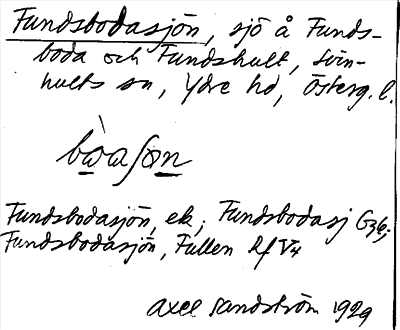 Fundsbodasjön, sjö å Funds-
boda och Fundshult, Svin-
hults sn, Ydre hd, Österg. l.
bòasön
Fundsbodasjön, ek.; Fundsbodasj G36;
Fundsbodasjön, Fullen Rf V4
Axel Sandström 1929